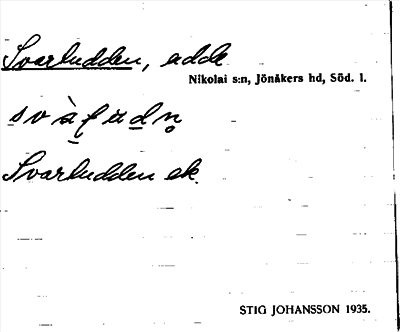 Svarludden, udde
Nikolai s:n, Jönåkers hd, Söd. l.
Svarludden ek.
STIG JOHANSSON 1935.